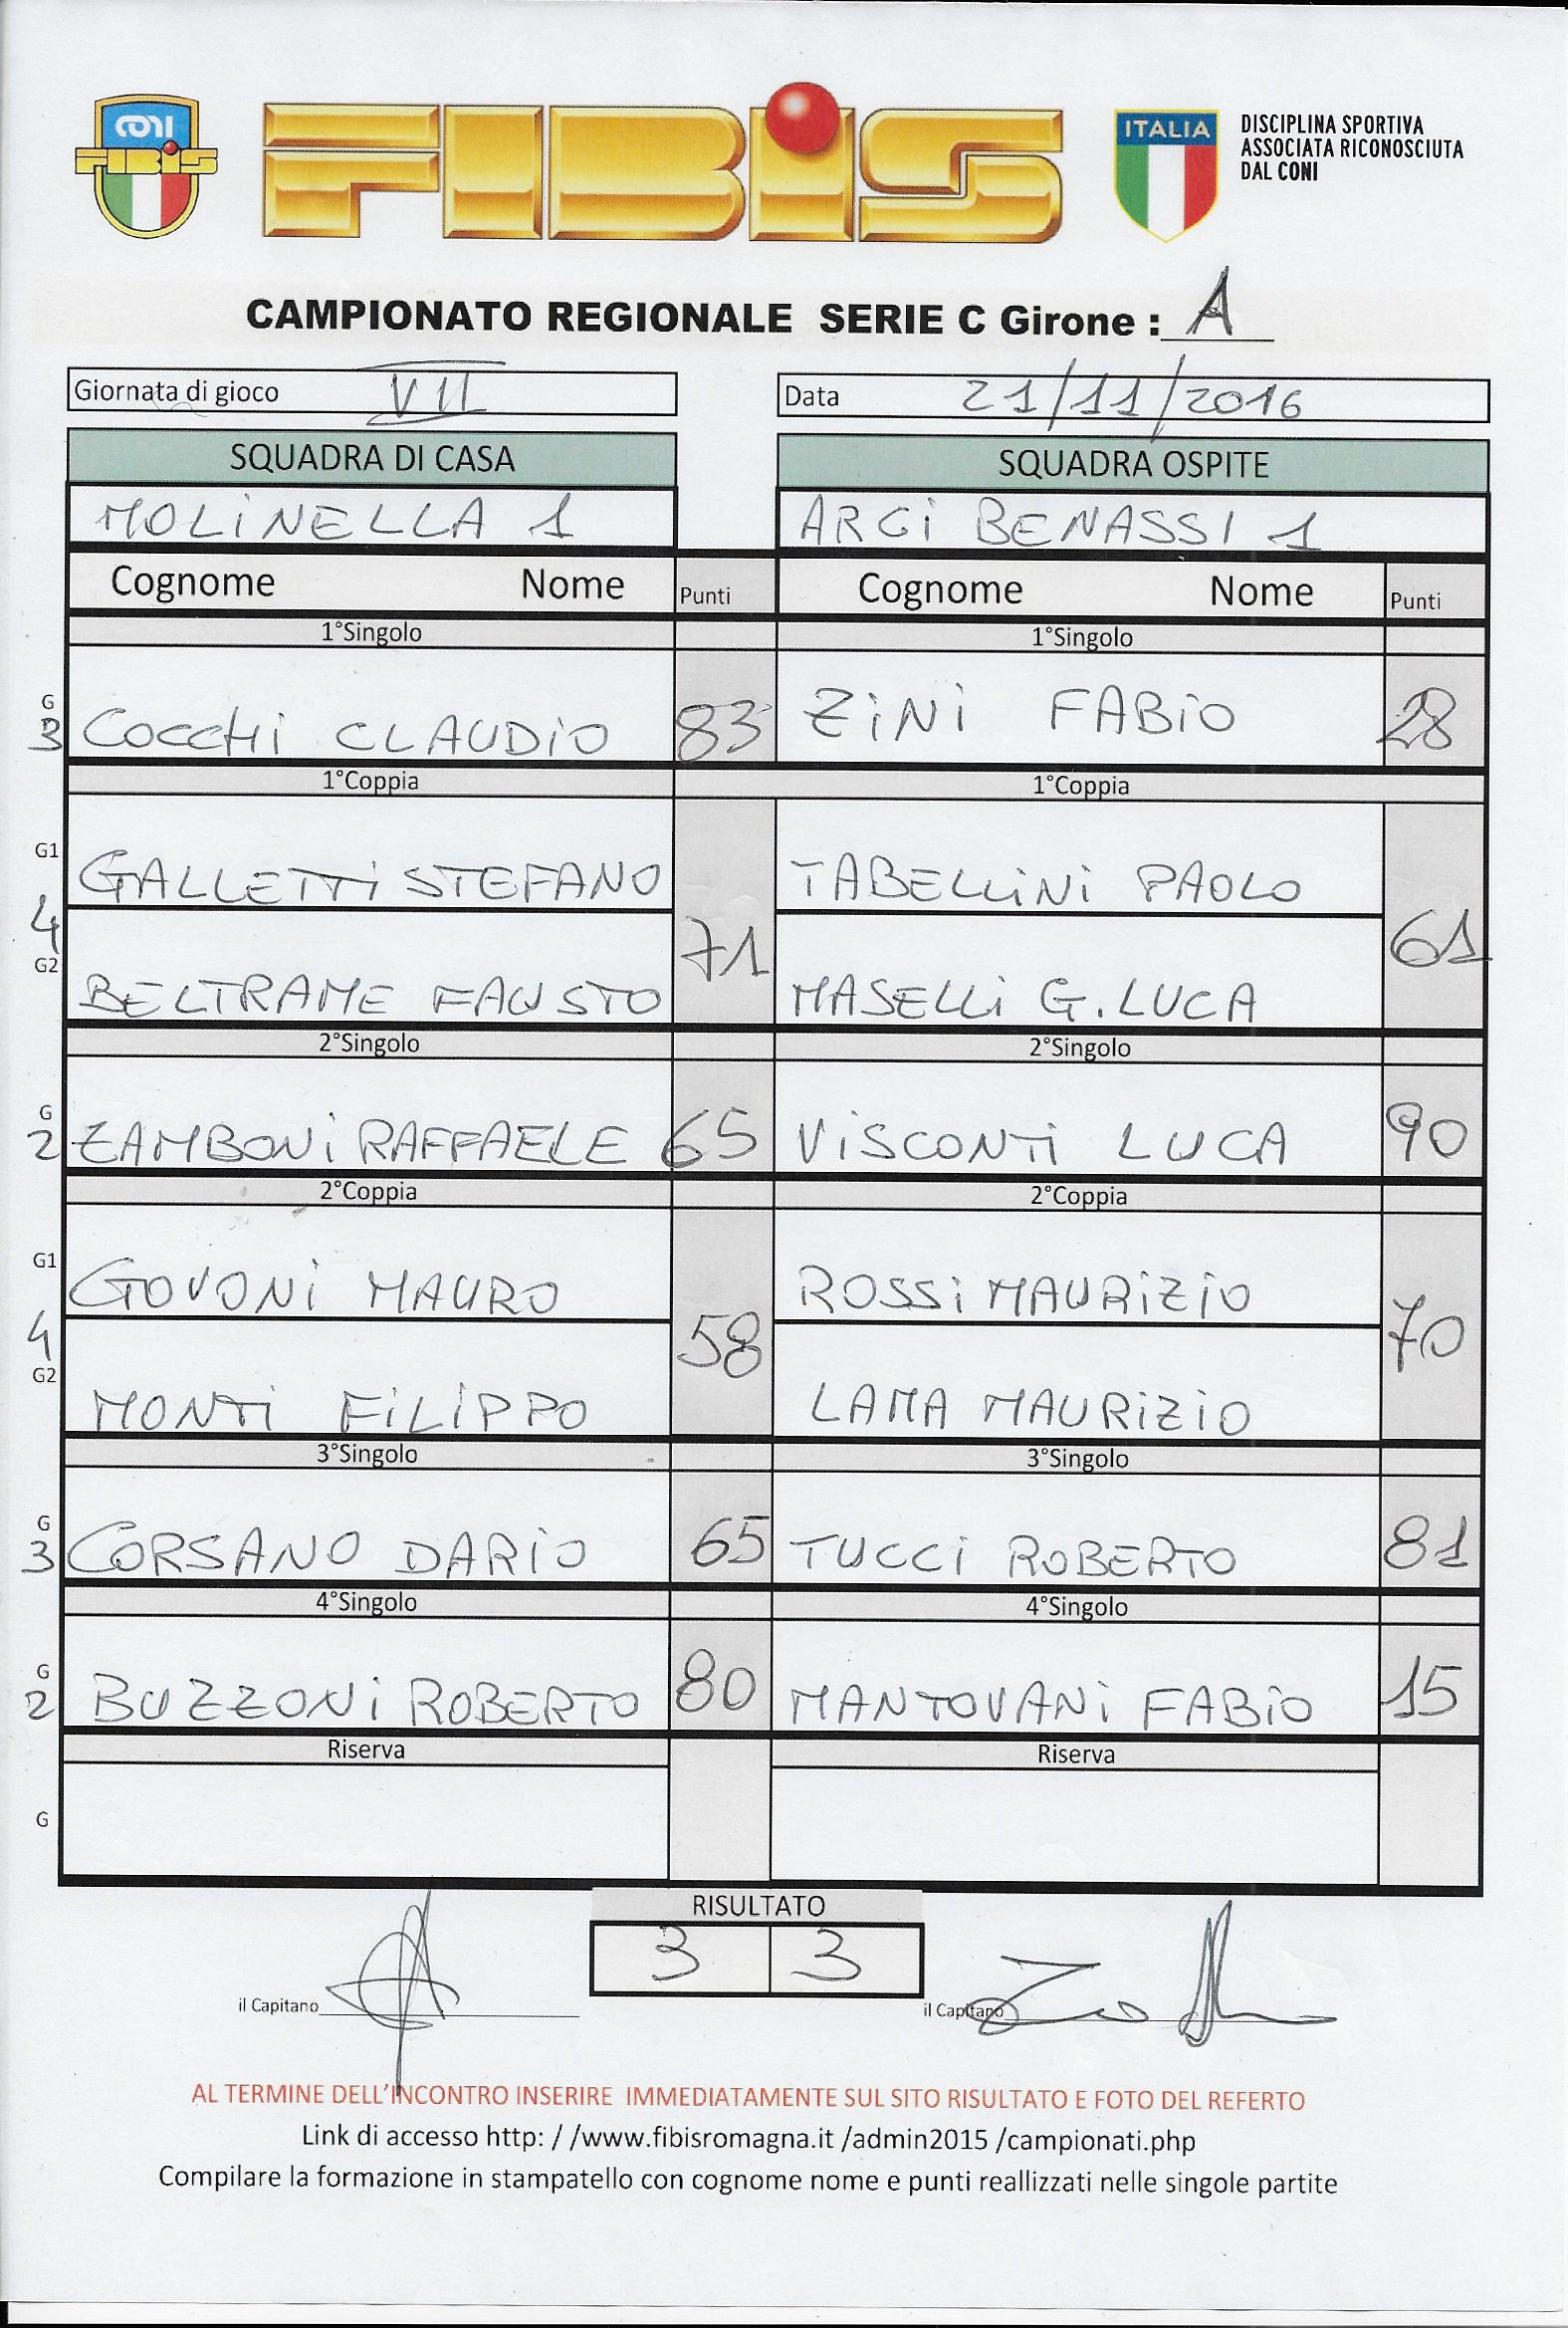 CONI
FIBIS
FIBIS
ITALIA
DISCIPLINA SPORTIVA
ASSOCIATA RICONOSCIUTA
DAL CONI
CAMPIONATO REGIONALE SERIE C Girone : A
Giornata di gioco VII
Data 21/11/2016
SQUADRA DI CASA
SQUADRA OSPITE
MOLINELLA 1
ARCI BENASSI 1
Cognome Nome Punti
Cognome Nome Punti
1°Singolo
1°Singolo
G
3 COCCHI CLAUDIO 83
ZINI FABIO 28
1°Coppia
1°Coppia
G1 GALLETTI STEFANO
TABELLINI PAOLO
4 71
61
G2 BELTRAME FAUSTO
MASELLI G. LUCA
2°Singolo
2°Singolo
G
2 ZAMBONI RAFFAELE 65
VISCONTI LUCA 90
2°Coppia
2°Coppia
G1 GOVONI MAURO
ROSSI MAURIZIO
4 58
70
G2 MONTI FILIPPO
LAMA MAURIZIO
3°Singolo
3°Singolo
G
3 CORSANO DARIO 65
TUCCI ROBERTO 81
4°Singolo
4°Singolo
G
2 BUZZONI ROBERTO 80
MANTOVANI FABIO 15
Riserva
Riserva
G
RISULTATO
3 3
il Capitano
il Capitano
AL TERMINE DELL'INCONTRO INSERIRE IMMEDIATAMENTE SUL SITO RISULTATO E FOTO DEL REFERTO
Link di accesso http: / /www.fibisromagna.it /admin2015 /campionati.php
Compilare la formazione in stampatello con cognome nome e punti reallizzati nelle singole partite